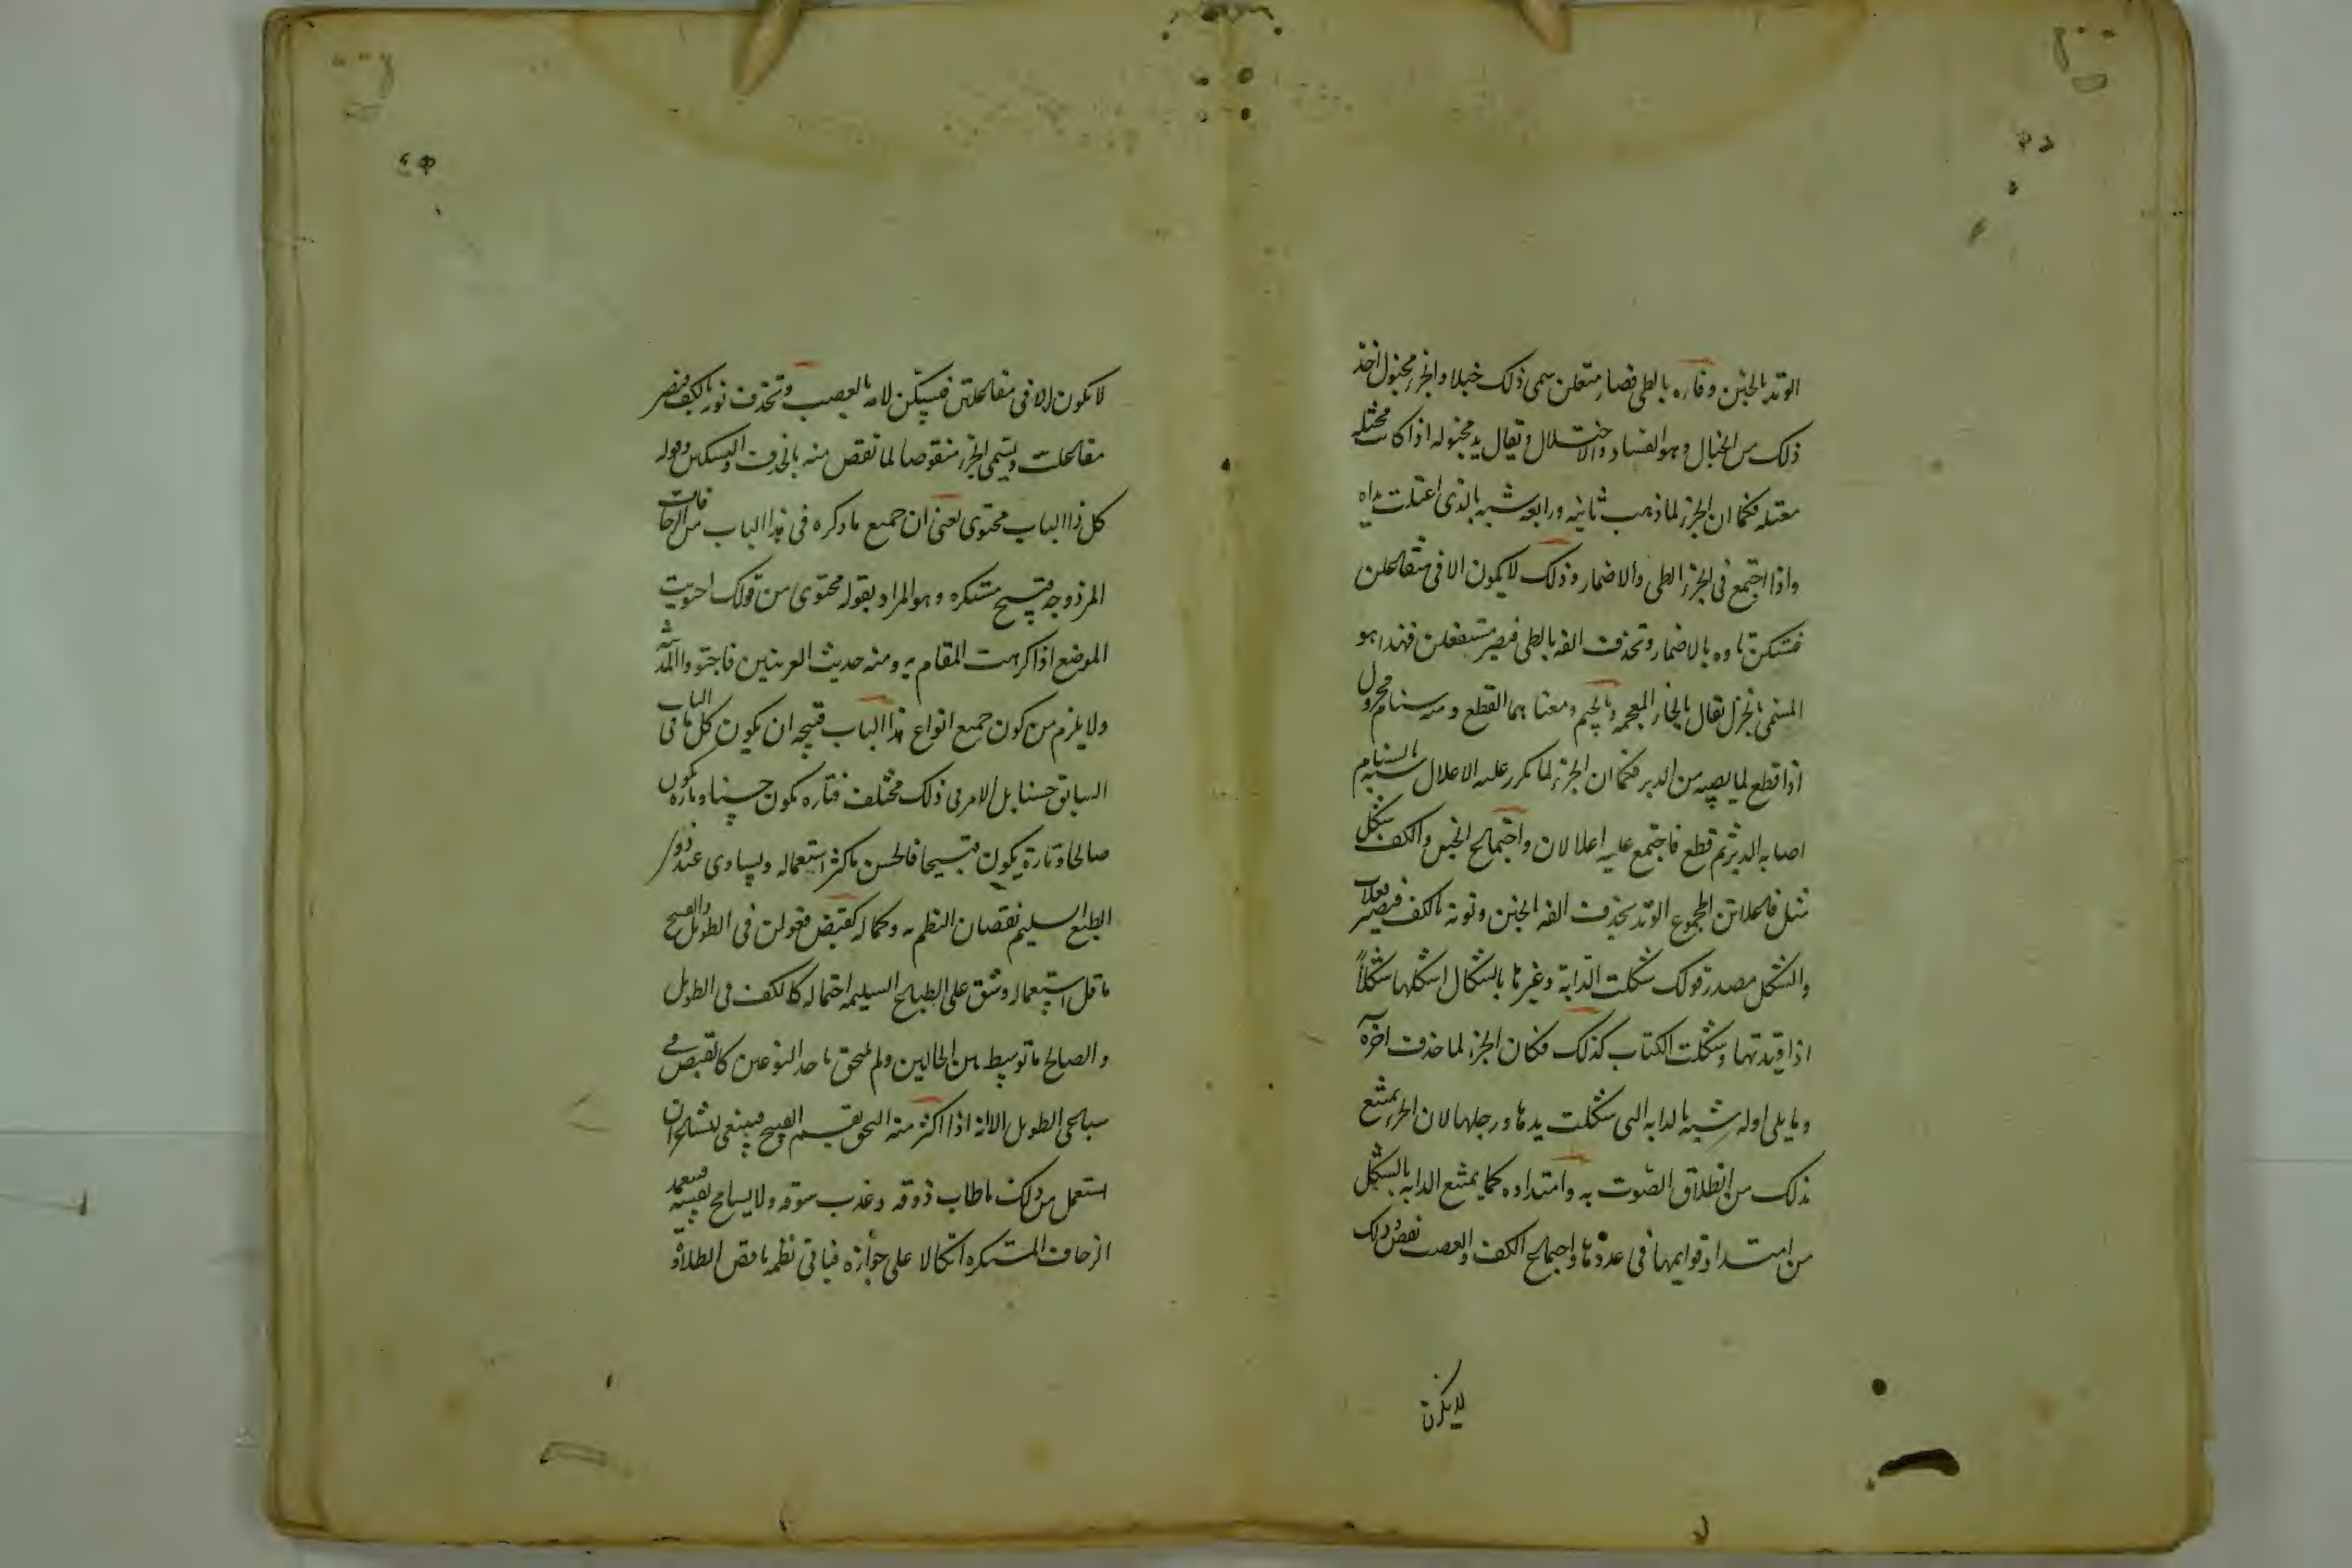 الوتد بالخبن وفاءه بالطى فصار متعلن سمى ذلك خبلا والجزء مخبول اخذ
ذلك من الخبال وهو الفساد والاختلال ويقال يد مخبوله اذا كانت مختله
معتله فكما ان الجزء لما ذهب ثانيه ورابعه شبه بالذى اعتلت يداه
واذا اجتمع فى الجزء الطى والاضمار وذلك لا يكون الا فى متفاعلن
فتسكن تاوه بالاضمار وتحذف الفه بالطى فيصير متفعلن فهذا هو
المسمى بالخزل يقال بالخاء المعجمه وبالجيم ومعناهما القطع ومنه سنام مجزول
اذا قطع لما يصيبه من الدبر فكما ان الجزء لما تكرر عليه الاعلال شبه بالسنام
اصابه الدبر ثم قطع فاجتمع عليه اعلالان واجتماع الخبن والكف شكل
مثل فاعلاتن المجموع الوتد يحذف الفه بالخبن ونونه بالكف فيصير فعلات
والشكل مصدر قولك شكلت الدابة وغيرها بالشكال اشكلها شكلاً
اذا قيدتها وشكلت الكتاب كذلك فكان الجزء لما حذف اخره
وما يلى اوله شبه بالدابه التى شكلت يدها ورجلها لان الجزء يمتنع
بذلك من انطلاق الصوت به وامتداده كما يمتنع الدابه بالشكل
من امتداد قوايمها فى عدوها واجتماع الكف والعصب نقص وذلك
لا يكون
لا يكون الا فى مفاعلتن فيسكن لامه بالعصب وتحذف نونه بالكف فيصير
مفاعلت ويسمى الجزء منقوصا لما نقص منه بالحذف والتسكين وقوله
كل ذا الباب محتوى يعنى ان جميع ما ذكره فى هذا الباب من الزحافات
المزدوجه قبيح مستكره وهو المراد بقوله محتوى من قولك احتويت
الموضع اذا كرهت المقام به ومنه حديث العرنيين فاجتووا المدينة
ولا يلزم من كون جميع انواع هذا الباب قبيحه ان يكون كل ما فى الباب
السابق حسنا بل الامر فى ذلك مختلف فتاره يكون حسنا وتاره يكون
صالحا وتارة يكون قبيحا فالحسن ما كثر استعماله وليساوى عند ذوى
الطبع السليم نقصان النظم به وكماله كقبض فعولن فى الطويل والقبيح
ما قل استعماله وشق على الطباع السليمه احتماله كالكف فى الطويل
والصالح ما توسط بين الحالين ولم يلتحق باحد النوعين كالقبض فى
سباعى الطويل الا انه اذا اكثر منه التحق بقسم القبيح فينبغى للشاعر ان
استعمل من ذلك ما طاب ذوقه وعذب سوقه ولا يسامح نفسه فيعمد
الزحاف المستكره اتكالا على جوازه فياتى نظمه ناقص الطلاوة